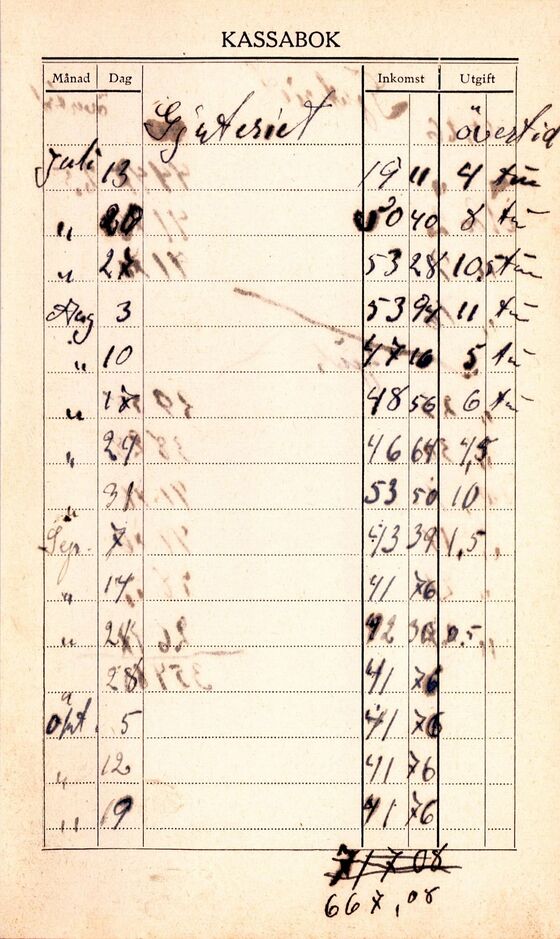 KASSABOK
Månad Dag Inkomst Utgift
Gjuteriet övertid
Juli 13 19 11 4 tim
" 20 50 40 8 tim
" 27 53 28 10,5 tim
Aug 3 53 94 11 tim
" 10 47 16 5 tim
" 17 48 56 6 tim
" 24 46 64 4,5
" 31 53 50 10
Sep. 7 43 39 1,5
" 14 41 76
" 21 42 30 0.5
" 28 41 76
Okt. 5 41 76
" 12 41 76
" 19 41 76
717 08
667,08